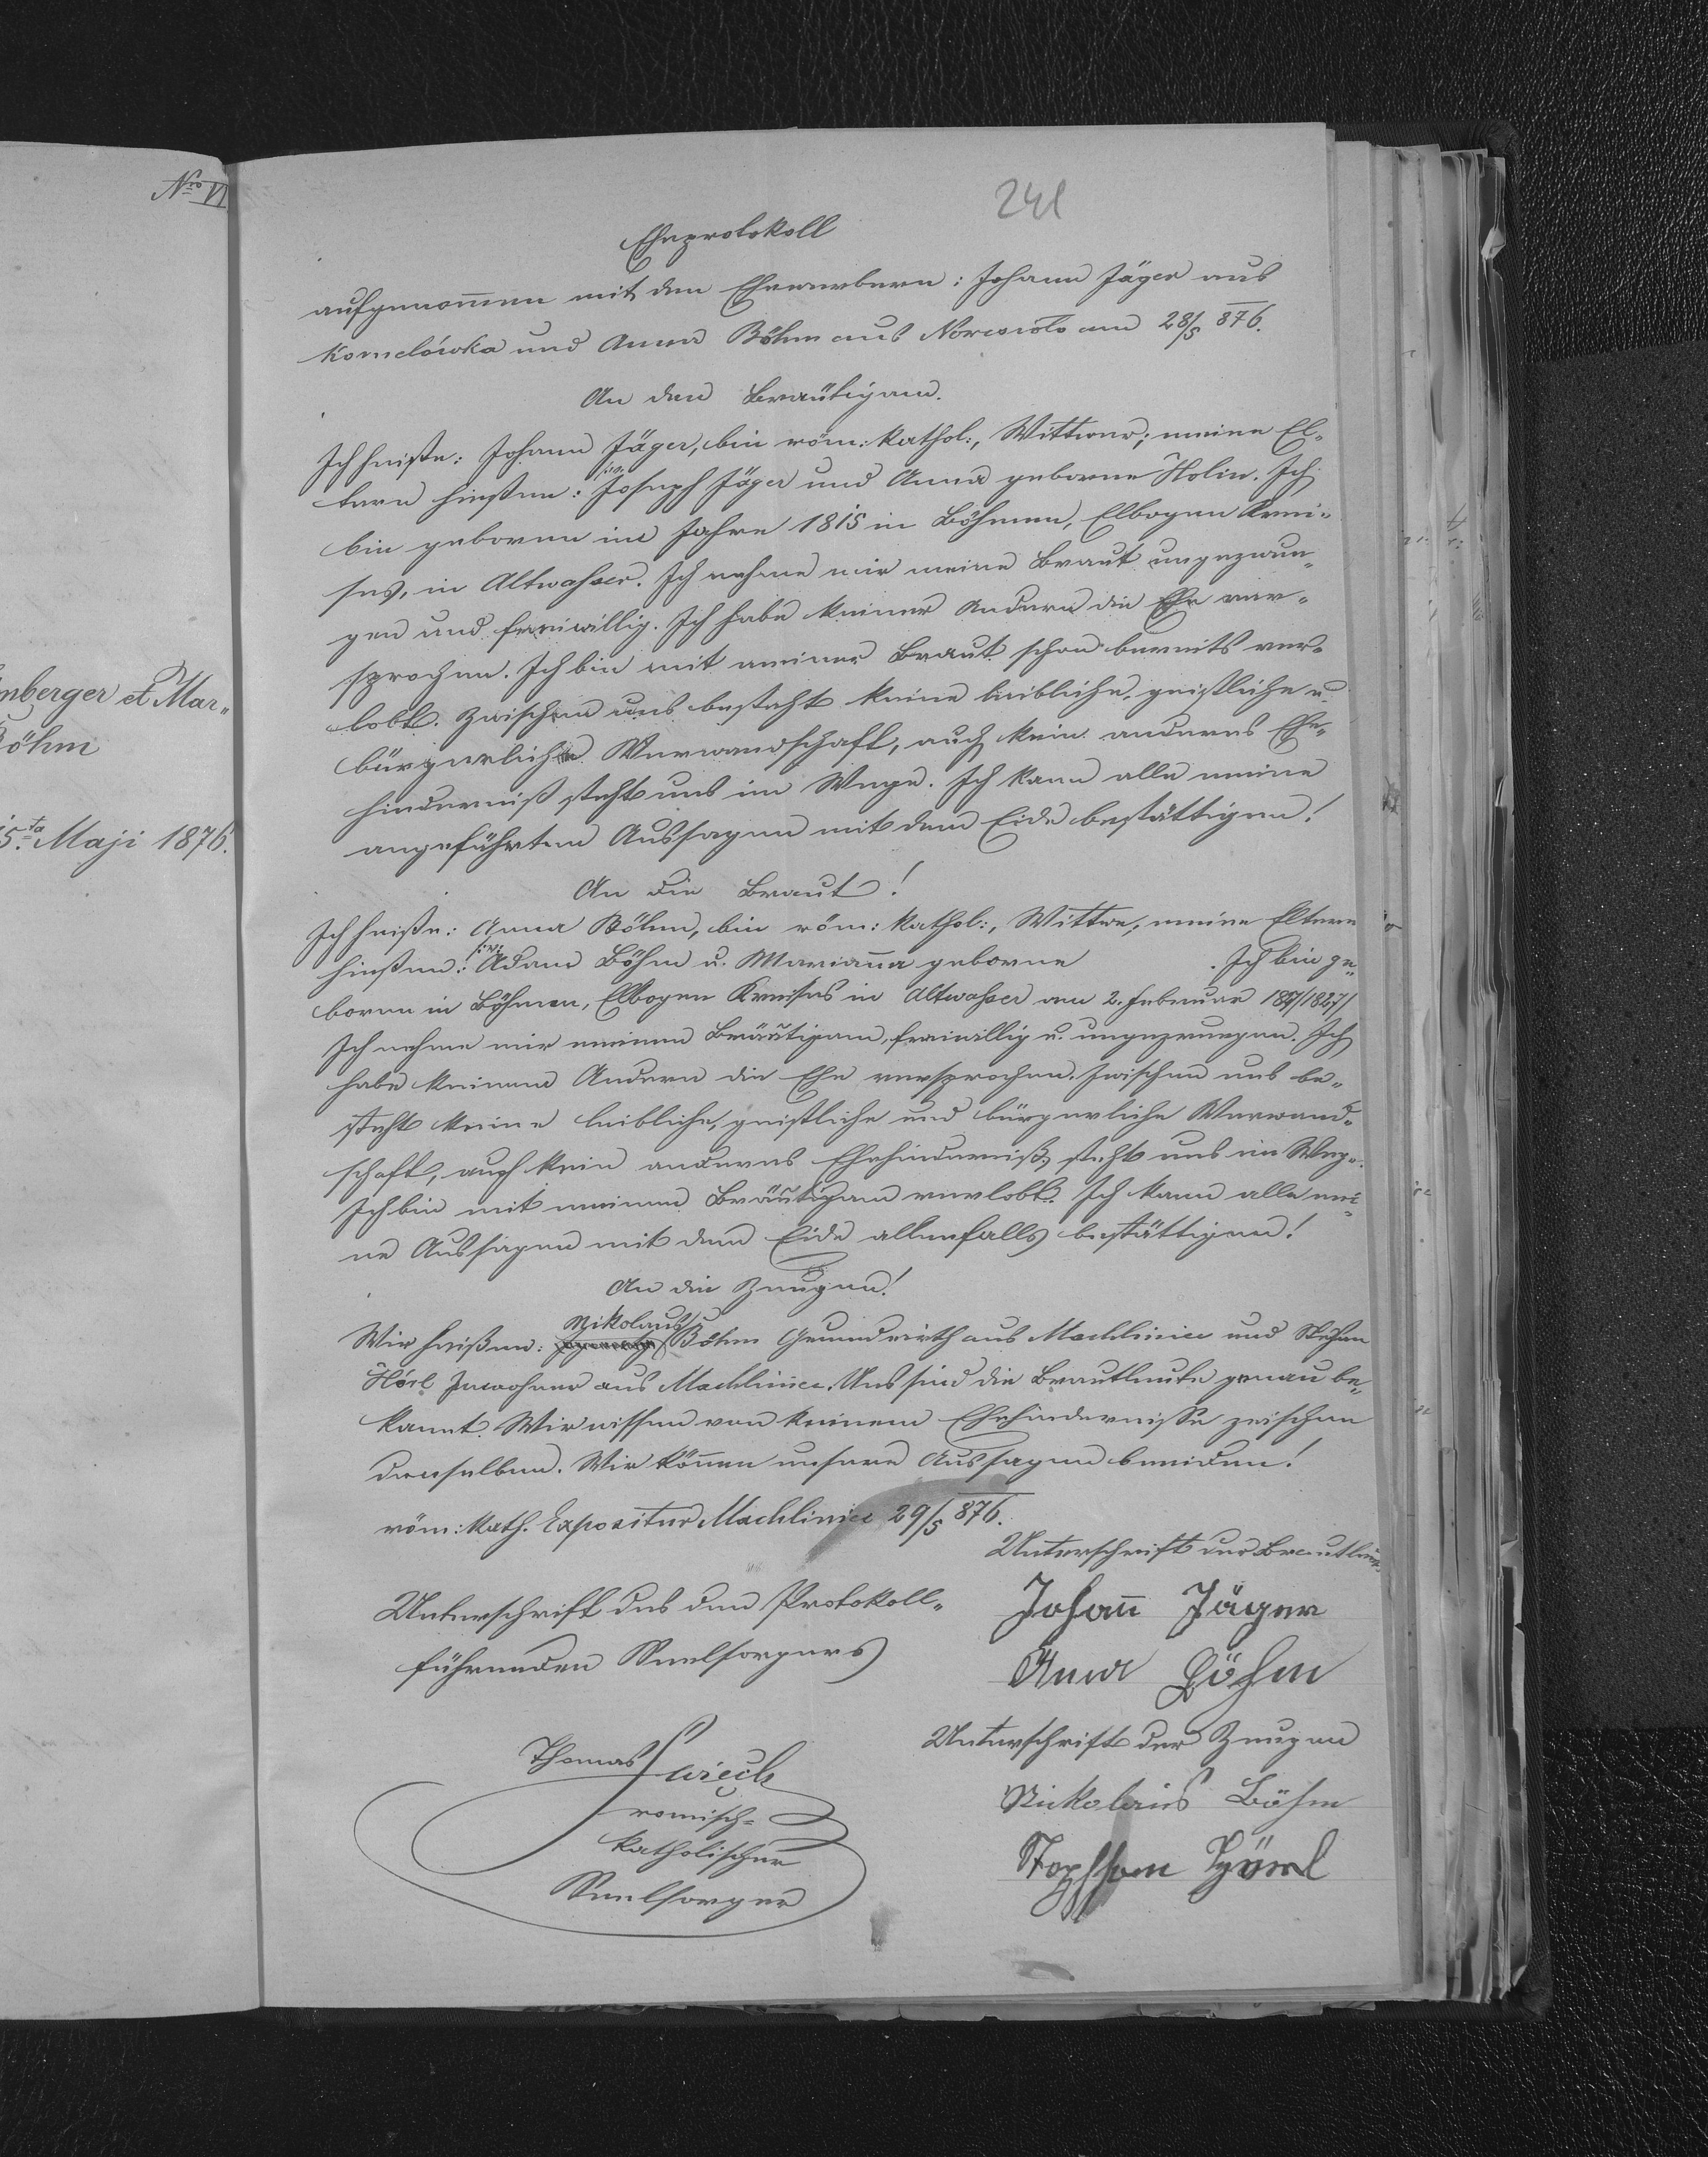 Nro VI
241
Eheprotokoll
aufgenommen mit den Ehewerbern: Johann Jäger aus
Kornelówka und Anna Böhm aus Nowesioło am 28/5 876.
An den Bräutigam.
Ich heiße: Johann Jäger, bin röm: kathol:, Wittwer; meine El-
tern hießen: Joseph Jäger und Anna geborne Holin. Ich
bin geboren im Jahre 1815 in Böhmen, Elbogen Krei-
ses, in Altwasser. Ich nehme mir meine Braut ungezwun-
gen und freiwillig. Ich habe keiner Andern die Ehe ver-
sprochen. Ich bin mit meiner Braut schon bereits ver-
lobt. Zwischen uns besteht keine leibliche, geistliche u.
bürgerliche Verwandschaft, auch kein anderes Ehe-
hinderniß steht uns im Wege. Ich kann alle meine
angeführten Aussagen mit dem Eide bestättigen!
An die Braut!
Ich heiße: Anna Böhm, bin röm: kathol:, Wittwe, meine Eltern
hießen: Adam Böhm u. Marianna geborne . Ich bin ge-
boren in Böhmen, Elbogen Kreises in Altwasser am 2. Februar 1827/1827/
Ich nehme mir meinen Bräutigam, freiwillig u. ungezwungen. Ich
habe keinem Andern die Ehe versprochen. Zwischen uns be-
steht keine leibliche, geistliche und bürgerliche Verwand-
schaft, auch kein anderes Ehehinderniß, steht uns im Wege.
Ich bin mit meinem Bräutigam verlobt. Ich kann alle mei-
ne Aussagen mit dem Eide allenfalls bestättigen!
An die Zeugen!
Wir heißen: Nikolaus Böhm Grundwirth aus Machliniec und Stefan
Hörl Inwohner aus Machliniec. Uns sind die Brautleute genau be-
kannt. Wir wissen von keinem Ehehindernisse zwischen
denselben. Wir können unsere Aussagen beeiden!
röm: kath. Expositur Machliniec 29/5 876.
Unterschrift der Brautleute
Unterschrift des den Protokoll-
führenden Seelsorgers
Johann Jäger
Anna Böhm
Unterschrift der Zeugen
Nikolaus Böhm
Stephan Hörl
Thomas
römisch-
katholischer
Seelsorger
nberger et Mar-
Böhm
5ta Maji 1876.